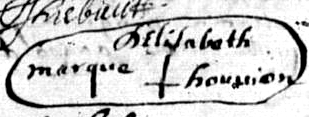 Thiebaut
d'Elisabeth
marque houuion